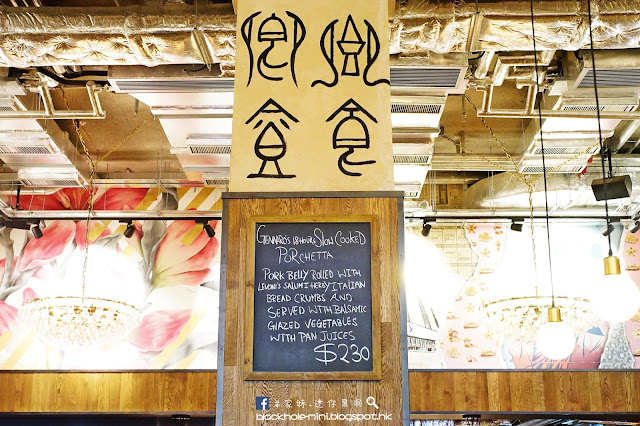 GENNARO'S 18 HOUR SLOW COOKED
PORCHETTA
PORK BELLY ROLLED WITH
LEVONI'S SALUMI HERBY ITALIAN
BREAD CRUMBS AND
SERVED WITH BALSAMIC
GLAZED VEGETABLES
WITH PAN JUICES
$230
迷你黑洞
blackhole-mini.blogspot.hk